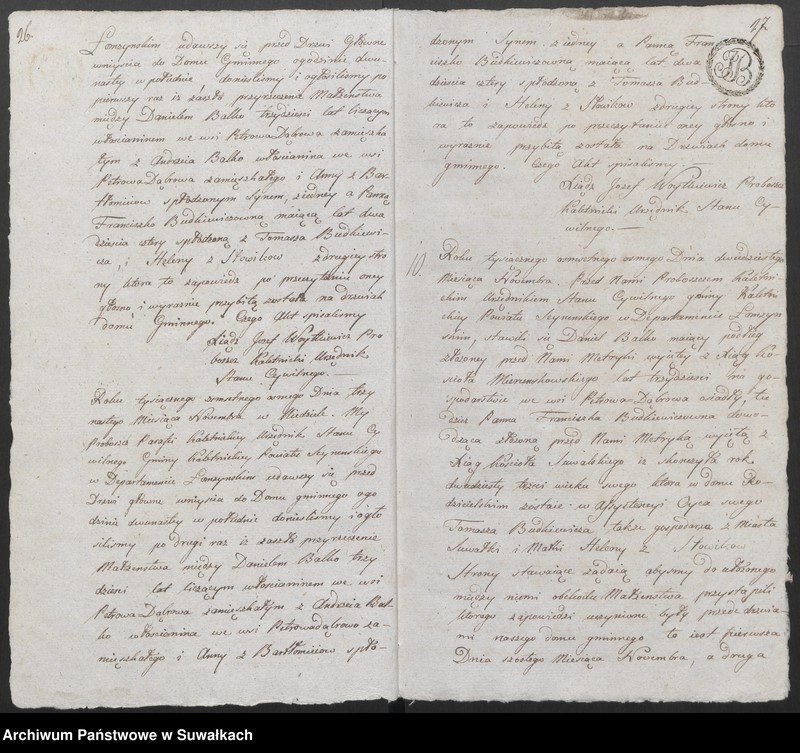 26.
Łomzynskim udawszy się przed Drzwi Główne
wniyscia do Domu Gminnego o godzinie dwu-
nasty w południe donieslismy i ogłosilismy po
pierwszy raz iż zaszło przyrzeczenie Małżenstwa
między Danielem Balko trzydziesci lat liczącym
włoscianinem we wsi Petrowa Dąbrowa zamięszka
łym z Andrzeia Balko włoscianina we wsi
Petrowa Dąbrowa zamięszkałego i Anny z Bar-
tłomieiow spłodzonym Synem, z iedney a Panną
Franciszką Budkiewiczowną maiącą lat dwa
dziescia cztery spłodzoną z Tomasza Budkiewi-
cza, i Heleny z Słowikow z drugiey stro
ny ktora to zapowiedz po przeczytaniu oney
głosno i wyraznie przybitą została na drzwiach
domu Gminnego. Czego Akt spisalismy
Xiądz Jozef Woytkiewicz Pro
boszcz Kaletnicki Urzędnik
Stanu Cywilnego.
Roku tysiącznego osmsetnego osmego Dnia trzy
nastego Miesiąca Novembra w Niedziele. My
Proboszcz Parafii Kaletnickiey Urzędnik Stanu Cy
wilnego Gminy Kaletnickiey Powiatu Seynenskiego
w Departamencie Łomzynskim udawszy się przed
Drzwi główne wniyscia do Domu gminnego o go
dzinie dwunasty w południe donieslismy i ogło
silismy po drugi raz iż zaszło przyrzeczenie
Małżenstwa między Danielem Balko trzy
dziesci lat liczącym włoscianinem we wsi
Petrowa Dąbrowa zamięszkałym z Andrzeia Bal-
ko włoscianina we wsi Petrowa dąbrowo za-
mięszkałego i Anny z Bartłomieiow spło-
27.
dzonym Synem z iedney a Panną Fran
ciszką Budkiewiczowną maiącą lat dwa
dziescia cztery spłodzoną z Tomasza Bud-
kiewicza i Heleny z Słowikow z drugiey strony kto
ra to zapowiedz po przeczytaniu oney głosno i
wyraznie przybitą została na Drzwiach domu
gminnego. Czego Akt spisalismy.
Xiądz Jozef Woytkiewicz Proboszcz
Kaletnicki Urzędnik Stanu Cy-
wilnego.
10. Roku tysiącznego osmsetnego osmego Dnia dwudziestego
Miesiąca Novembra. Przed Nami Proboszczem Kaletni-
ckim Urzędnikiem Stanu Cywilnego gminy Kaletni-
ckiey Powiatu Seynenskiego w Departamencie Łomzyn
skim, stawili się Daniel Balko maiący podług
złożoney przed Nami Metryki wyięty z Xiąg Ko-
scioła lat trzydziesci na go-
spodarstwie we wsi Petrowa Dąbrowa osiadły, tu
dzież Panna Franciszka Budkiewiczowna dowo-
dząca złożoną przed Nami Metryką wyiętą z
Xiąg Koscioła Suwalskiego iż skonczyła rok
dwudziesty trzeci wieku swego ktora w domu Ro-
dzicielskim zostaie w Assystencyi Oyca swego
Tomasza Budkiewicza także gospodarza z Miasta
Suwałki i Matki Heleny z Słowikow
Strony stawaiące żądaią abysmy do ułożonego
między niemi obchodu Małżenstwa przystąpili
ktorego zapowiedzi uczynione były przede drzwia-
mi naszego domu gminnego to iest pierwsza
Dnia szostego Miesiąca Novembra, a druga
Archiwum Państwowe w Suwałkach